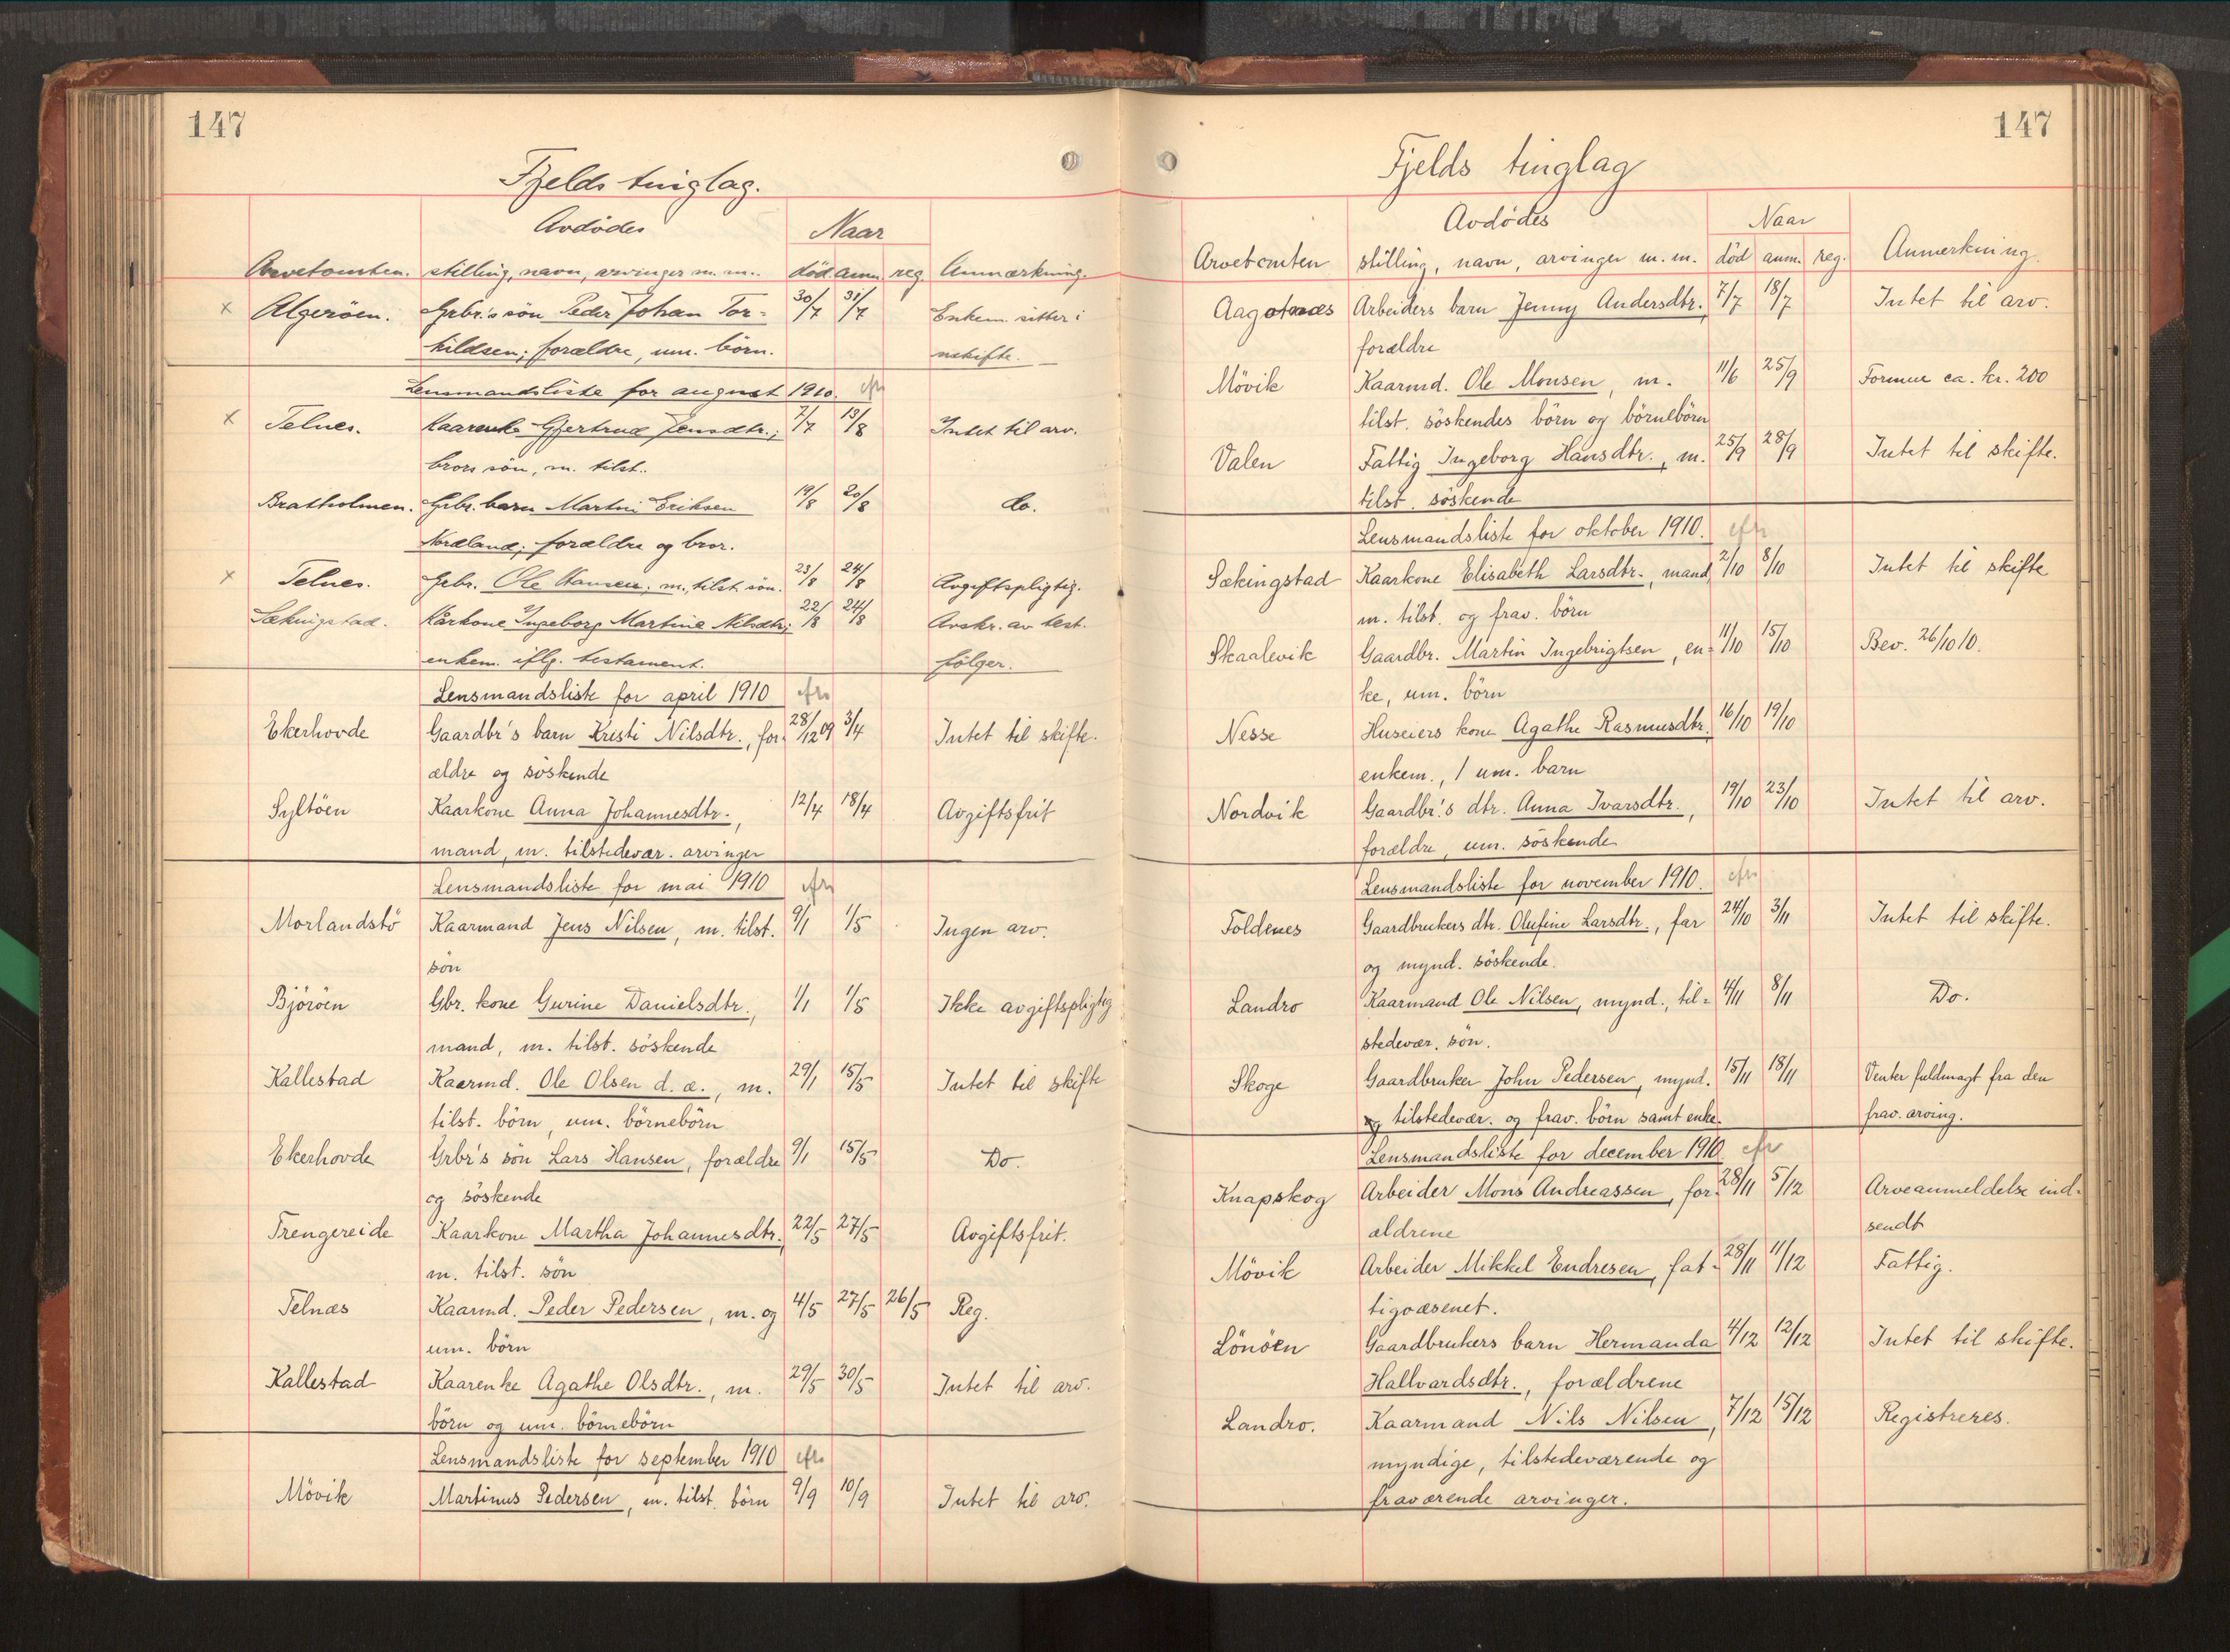 147
Fjelds tinglag.
Avdödes Naar
Arvetomten. stilling, navn, arvinger m. m. död anm. reg. Anmærkning.
x Algeröen. Grbr.s sön Peder Johan Tor- 30/7 31/7 Enkem. sitter i
kildsen; forældre, um. börn. uskifte.
Lensmandsliste for august 1910. efr
x Telnes. Kaarenke Gjertrud Jensdtr.; 7/7 13/8 Intet til arv.
brors sön, m. tilst.
Bratholmen. Grbr. barn Martin Eriksen 19/8 20/8 do.
Nordland; forældre og bror.
x Telnes. Grbr. Ole Hansen; m., tilst. sön. 23/8 24/8 Avgiftspligtig.
Sækingstad. Kårkone Ingeborg Martine Nilsdtr; 22/8 24/8 Avskr. av test.
enkem. iflg. testament. følger.
Lensmandsliste for april 1910 efr
Ekerhovde Gaardbr's barn Kristi Nilsdtr., for- 28/12 09 3/4 Intet til skifte.
ældre og söskende
Syltöen Kaarkone Anna Johannesdtr., 12/4 18/4 Avgiftsfrit
mand, m. tilstedevær. arvinger
Lensmandsliste for mai 1910 efr
Morlandstö Kaarmand Jens Nilsen, m. tilst. 9/1 1/5 Ingen arv.
sön
Björöen Gbr. kone Gurine Danielsdtr., 1/1 1/5 Ikke avgiftspligtig
mand, m. tilst. söskende
Kallestad Kaarmd. Ole Olsen d. æ., m. 29/1 15/5 Intet til skifte
tilst. börn, um. börnebörn
Ekerhovde Grbr's sön Lars Hansen, forældre 9/1 15/5 Do.
og söskende
Trengereide Kaarkone Martha Johannesdtr., 22/5 27/5 Avgiftsfrit.
m. tilst. sön
Telnæs Kaarmd. Peder Pedersen, m. og 4/5 27/5 26/5 Reg.
um. börn
Kallestad Kaarenke Agathe Olsdtr., m. 29/5 30/5 Intet til arv.
börn og um. börnebörn
Lensmandsliste for september 1910 efr
Mövik Martinus Pedersen, m. tilst. börn 9/9 10/9 Intet til arv.
147
Fjelds tinglag
Avdödes Naar
Arvetomten stilling, navn, arvinger m. m. död anm. reg. Anmerkning.
Aagotnæs Arbeiders barn Jenny Andersdtr., 7/7 18/7 Intet til arv.
forældre
Mövik Kaarmd. Ole Monsen, m. 11/6 25/9 Formue ca. kr. 200
tilst. söskendes börn og börnebörn
Valen Fattig Ingeborg Hansdtr., m. 25/9 28/9 Intet til skifte.
tilst. söskende
Lensmandsliste for oktober 1910. efr
Sækingstad Kaarkone Elisabeth Larsdtr., mand, 2/10 8/10 Intet til skifte
m. tilst. og frav. börn
Skaalevik Gaardbr. Martin Ingebrigtsen, en- 11/10 15/10 Bev. 26/10 10.
ke, um. börn
Nesse Huseiers kone Agathe Rasmusdtr. 16/10 19/10
enkem., 1 um. barn
Nordvik Gaardbr.'s dtr. Anna Ivarsdtr., 19/10 23/10 Intet til arv.
forældre, um. söskende
Lensmandsliste for november 1910. efr
Foldenes Gaardbrukers dtr. Olufine Larsdtr., far 24/10 3/11 Intet til skifte.
og mynd. söskende.
Landro Kaarmand Ole Nilsen, mynd., til- 4/11 8/11 Do.
stedevær. sön.
Skoge Gaardbruker John Pedersen, mynd. 15/11 18/11 Venter fuldmagt fra den
og tilstedevær. og frav. börn samt enke. frav. arving.
Lensmandsliste for december 1910. efr
Knapskog Arbeider Mons Andreassen, for- 28/11 5/12 Arveanmeldelse ind-
ældrene sendt
Mövik Arbeider Mikkel Endresen, fat- 28/11 11/12 Fattig.
tigvæsenet.
Lönöen Gaardbrukers barn Hermanda 4/12 12/12 Intet til skifte.
Hallvardsdtr., forældrene
Landro. Kaarmand Nils Nilsen, 7/12 15/12 Registreres.
myndige, tilstedeværende og
fraværende arvinger.